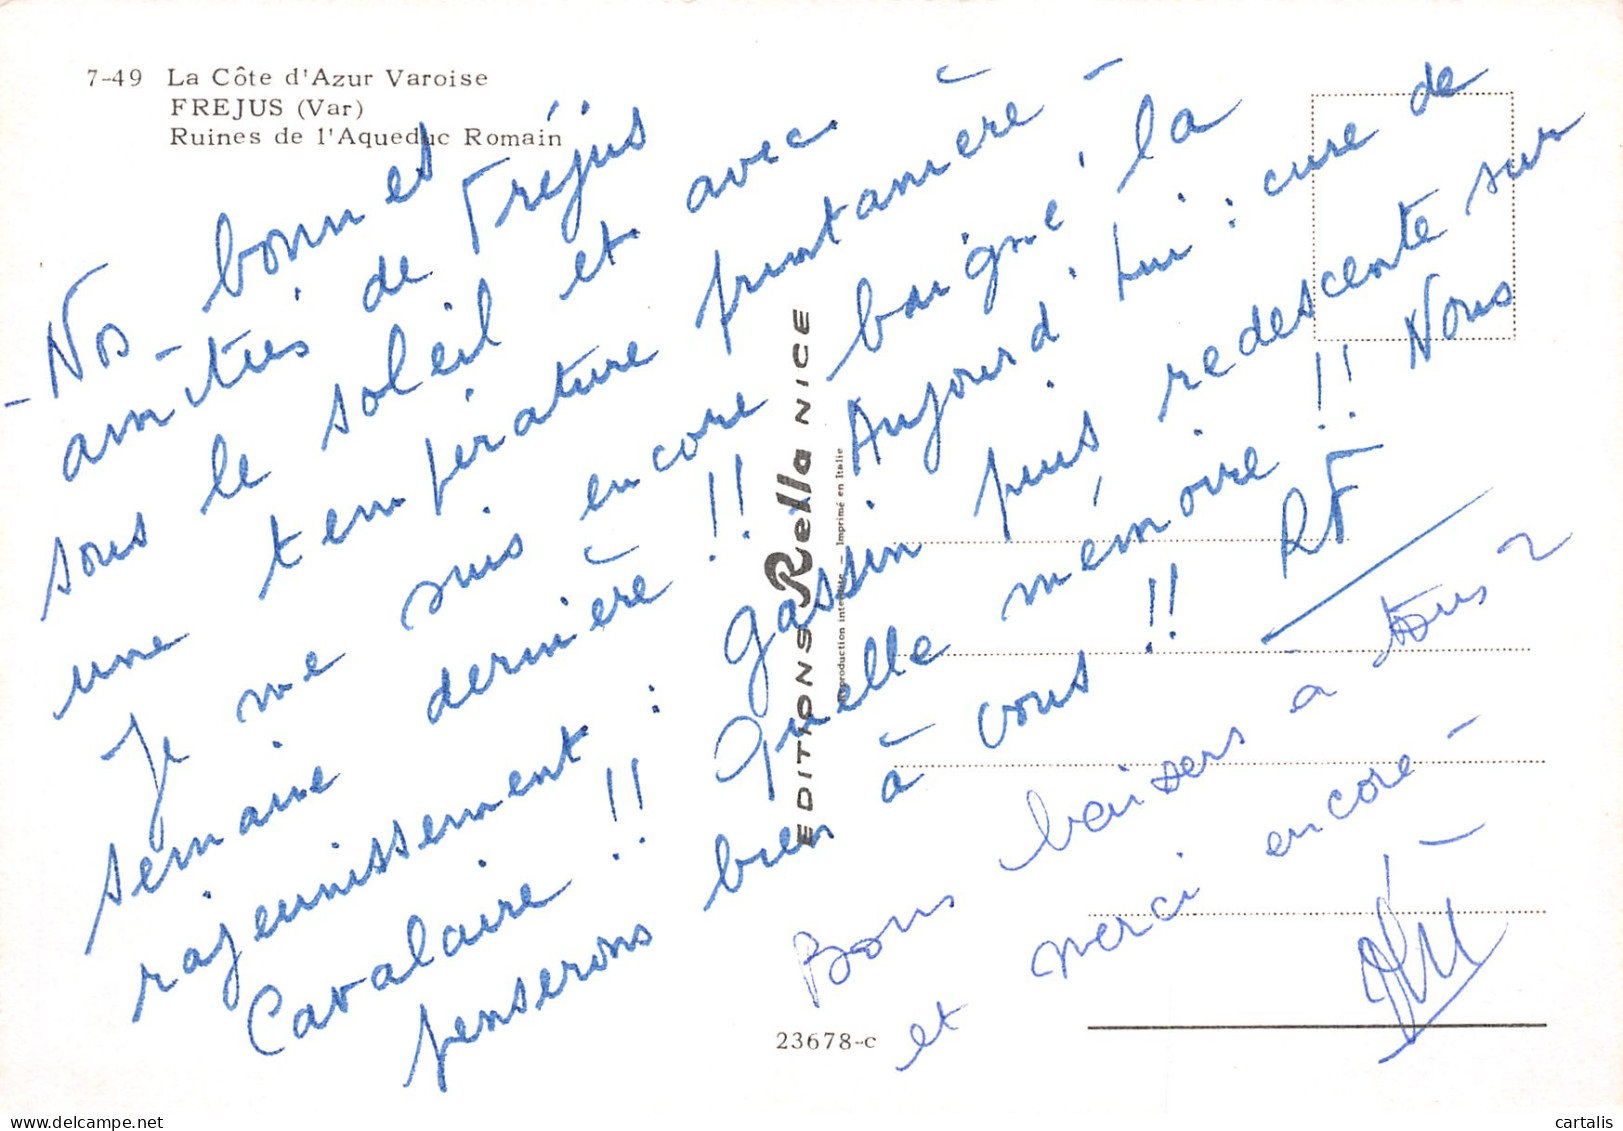 7-49 La Côte d'Azur Varoise
FREJUS (Var)
Ruines de l'Aqueduc Romain
- Nos bonnes
amitiés de Fréjus
sous le soleil et avec
une température printanière -
Je me suis encore baigné, la
semaine dernière !! Aujourd'hui : cure de
rajeunissement : Gassin puis redescente sur
Cavalaire !! Quelle mémoire !! Nous
penserons bien à vous !! RF
Bons baisers a tous 2
et merci encore -
EDITIONS Rella NICE
Reproduction interdite — Imprimé en Italie
23678-c
cartalis